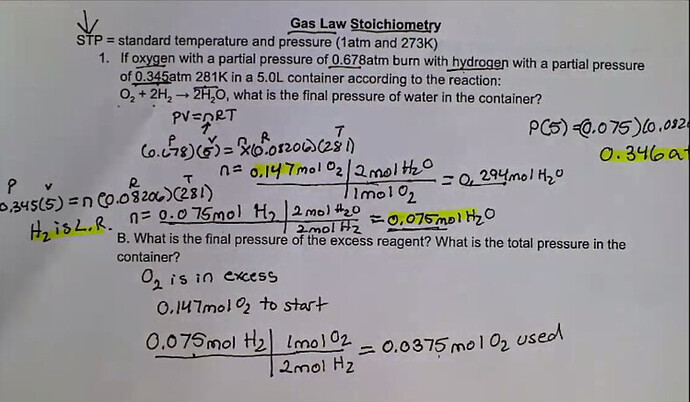 Gas Law Stoichiometry
STP = standard temperature and pressure (1atm and 273K)
1. If oxygen with a partial pressure of 0.678atm burn with hydrogen with a partial pressure
of 0.345atm 281K in a 5.0L container according to the reaction:
O₂ + 2H₂ → 2H₂O, what is the final pressure of water in the container?
PV=nRT
P(5)=(0.075)(0.082
P V n R T
(0.678)(5) = x(0.08206)(281)
0.346a
n = 0.147mol O₂ | 2molH₂O = 0.294molH₂O
1molO₂
P V R T
0.345(5) = n(0.08206)(281)
H₂ is L.R. n = 0.075mol H₂ | 2molH₂O = 0.075molH₂O
2molH₂
B. What is the final pressure of the excess reagent? What is the total pressure in the
container?
O₂ is in excess
0.147molO₂ to start
0.075molH₂ | 1molO₂ = 0.0375molO₂ used
2molH₂